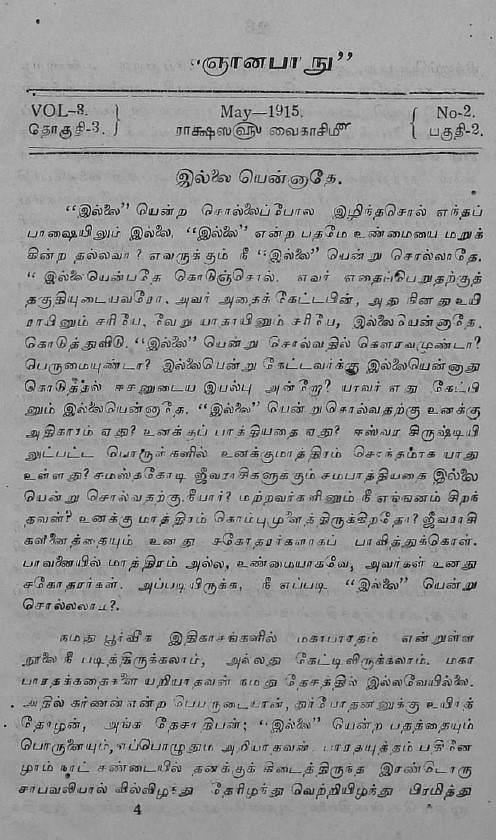 "ஞானபாநு"
VOL-3. May—1915. No-2.
தொகுதி-3. ராக்ஷஸஹு வைகாசிமீ பகுதி-2.
இல்லை யென்னாதே.
"இல்லை" யென்ற சொல்லைப்போல இழிந்தசொல் எந்தப்
பாஷையிலும் இலை. "இல்லை" என்ற பதமே உண்மையை மறுக்
கின்ற தல்லவா? எவருக்கும் நீ "இல்லை" யென்று சொல்லாதே.
"இல்லையென்பதே கொடுஞ்சொல். எவர் எதைப்பெறுதற்குத்
தகுதியுடையவரோ. அவர் அதைக் கேட்டபின், அது நினது உயி
ராயினும் சரியே, வேறு யாதாயினும் சரியே, இல்லையென்னாதே.
கொடுத்துவிடு. "இல்லை" யென்று சொல்வதில் கௌரவமுண்டா?
பெருமையுண்டா? இல்லையென்று கேட்டவர்க்கு இல்லையென்னாது
கொடுத்தல் ஈசனுடைய இயல்பு அன்றோ? யாவர் எது கேட்பி
னும் இல்லையென்னாதே. "இல்லை" யென்று சொல்வதற்கு உனக்கு
அதிகாரம் ஏது? உனக்குப் பாத்தியதை ஏது? ஈஸ்வர சிருஷ்டியி
லுட்பட்ட பொருள்களில் உனக்குமாத்திரம் சொந்தமாக யாது
உள்ளது? சமஸ்தகோடி ஜீவராசிகளுக்கும் சமபாத்தியதை இல்லை
யென்று சொல்வதற்கு நீயார்? மற்றவர்களினும் நீ எங்ஙனம் சிறந்
தவன்? உனக்கு மாத்திரம் கொம்புமுளைத்திருக்கிறதோ? ஜீவராசி
களனைத்தையும் உனது சகோதரர்களாகப் பாவித்துக்கொள்.
பாவனையில் மாத்திரம் அல்ல, உண்மையாகவே, அவர்கள் உனது
சகோதரர்கள். அப்படியிருக்க, நீ எப்படி "இல்லை" யென்று
சொல்லலாம்?.
நமது பூர்வீக இதிகாசங்களில் மகாபாரதம் என்றுள்ள
நூலை நீ படித்திருக்கலாம், அல்லது கேட்டிலிருக்கலாம். மகா
பாரதக்கதைகளை யறியாதவள் நமது தேசத்தில் இல்லவேயில்லை.
அதில் கர்ணன் என்ற பெயருடையான், துர்யோதனனுக்கு உயிர்த்
தோழன், அங்க தேசாதிபன்; "இல்லை" யென்ற பதத்தையும்
பொருளையும், எப்பொழுதும் அறியாதவன். பாரதயுத்தம் பதினே
ழாம் நாட் சண்டையில் தனக்குக் கிடைத்திருந்த இரண்டொரு
சாபவலியால் வில்லிழந்து தேரிழந்து வெற்றியிழந்து பிரமித்து
4